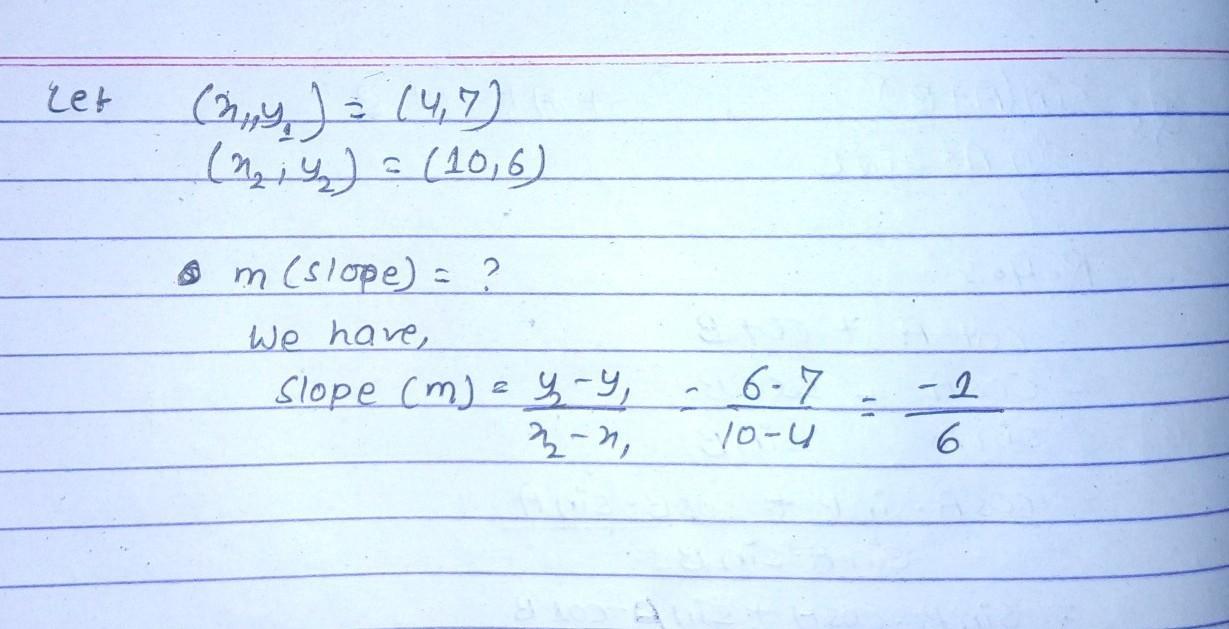 Let (x₁, y₁) = (4,7)
(x₂, y₂) = (10,6)
m (slope) = ?
We have,
Slope (m) = y₂-y₁ / x₂-x₁ = 6-7 / 10-4 = -1 / 6